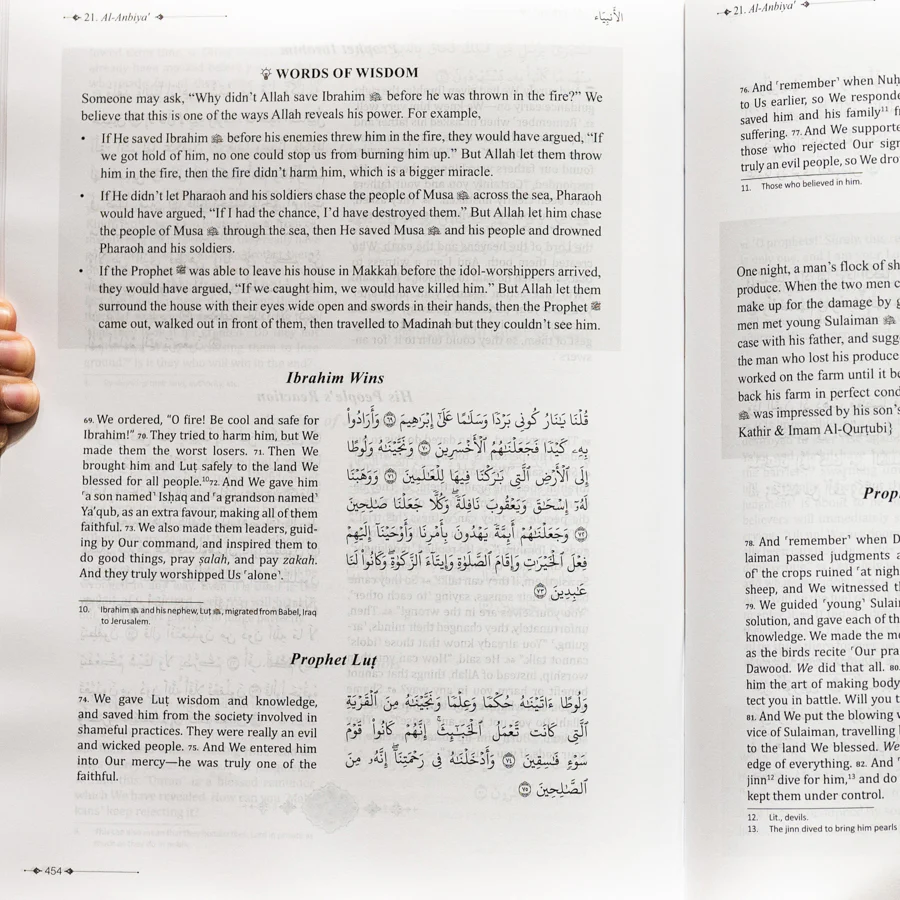 21. Al-Anbiya'
الأنبياء
WORDS OF WISDOM
Someone may ask, “Why didn’t Allah save Ibrahim ﷺ before he was thrown in the fire?” We
believe that this is one of the ways Allah reveals his power. For example,
• If He saved Ibrahim ﷺ before his enemies threw him in the fire, they would have argued, “If
we got hold of him, no one could stop us from burning him up.” But Allah let them throw
him in the fire, then the fire didn’t harm him, which is a bigger miracle.
• If He didn’t let Pharaoh and his soldiers chase the people of Musa ﷺ across the sea, Pharaoh
would have argued, “If I had the chance, I’d have destroyed them.” But Allah let him chase
the people of Musa ﷺ through the sea, then He saved Musa ﷺ and his people and drowned
Pharaoh and his soldiers.
• If the Prophet ﷺ was able to leave his house in Makkah before the idol-worshippers arrived,
they would have argued, “If we caught him, we would have killed him.” But Allah let them
surround the house with their eyes wide open and swords in their hands, then the Prophet ﷺ
came out, walked out in front of them, then travelled to Madinah but they couldn’t see him.
Ibrahim Wins
69. We ordered, “O fire! Be cool and safe for
Ibrahim!” 70. They tried to harm him, but We
made them the worst losers. 71. Then We
brought him and Luṭ safely to the land We
blessed for all people.¹⁰72. And We gave him
˹a son named˺ Isḥaq and ˹a grandson named˺
Ya’qub, as an extra favour, making all of them
faithful. 73. We also made them leaders, guid-
ing by Our command, and inspired them to
do good things, pray ṣalah, and pay zakah.
And they truly worshipped Us ˹alone˺.
10. Ibrahim ﷺ and his nephew, Luṭ ﷺ, migrated from Babel, Iraq
to Jerusalem.
قُلْنَا يَٰنَارُ كُونِى بَرْدًا وَسَلَٰمًا عَلَىٰٓ إِبْرَٰهِيمَ ٦٩ وَأَرَادُوا۟
بِهِۦ كَيْدًا فَجَعَلْنَٰهُمُ ٱلْأَخْسَرِينَ ٧٠ وَنَجَّيْنَٰهُ وَلُوطًا
إِلَى ٱلْأَرْضِ ٱلَّتِى بَٰرَكْنَا فِيهَا لِلْعَٰلَمِينَ ٧١ وَوَهَبْنَا
لَهُۥٓ إِسْحَٰقَ وَيَعْقُوبَ نَافِلَةً ۖ وَكُلًّا جَعَلْنَا صَٰلِحِينَ
٧٢ وَجَعَلْنَٰهُمْ أَئِمَّةً يَهْدُونَ بِأَمْرِنَا وَأَوْحَيْنَآ إِلَيْهِمْ
فِعْلَ ٱلْخَيْرَٰتِ وَإِقَامَ ٱلصَّلَوٰةِ وَإِيتَآءَ ٱلزَّكَوٰةِ ۖ وَكَانُوا۟ لَنَا
عَٰبِدِينَ ٧٣
Prophet Luṭ
74. We gave Luṭ wisdom and knowledge,
and saved him from the society involved in
shameful practices. They were really an evil
and wicked people. 75. And We entered him
into Our mercy—he was truly one of the
faithful.
وَلُوطًا ءَاتَيْنَٰهُ حُكْمًا وَعِلْمًا وَنَجَّيْنَٰهُ مِنَ ٱلْقَرْيَةِ
ٱلَّتِى كَانَت تَّعْمَلُ ٱلْخَبَٰٓئِثَ ۗ إِنَّهُمْ كَانُوا۟ قَوْمَ
سَوْءٍ فَٰسِقِينَ ٧٤ وَأَدْخَلْنَٰهُ فِى رَحْمَتِنَآ ۖ إِنَّهُۥ مِنَ
ٱلصَّٰلِحِينَ ٧٥
454
21. Al-Anbiya'
76. And ˹remember˺ when Nuḥ
to Us earlier, so We responde
saved him and his family¹¹ fr
suffering. 77. And We supporte
those who rejected Our sign
truly an evil people, so We dro
11. Those who believed in him.
One night, a man’s flock of sh
produce. When the two men c
make up for the damage by g
men met young Sulaiman ﷺ
case with his father, and sugg
the man who lost his produce
worked on the farm until it be
back his farm in perfect cond
ﷺ was impressed by his son’s
Kathir & Imam Al-Qurṭubi}
Prop
78. And ˹remember˺ when D
laiman passed judgments a
of the crops ruined ˹at nigh
sheep, and We witnessed th
79. We guided ˹young˺ Sulai
solution, and gave each of th
knowledge. We made the mo
as the birds recite ˹Our pra
Dawood. We did that all. 80.
him the art of making body
tect you in battle. Will you t
81. And We put the blowing w
vice of Sulaiman, travelling b
to the land We blessed. We
edge of everything. 82. And ˹
jinn¹² dive for him,¹³ and do
kept them under control.
12. Lit., devils.
13. The jinn dived to bring him pearls